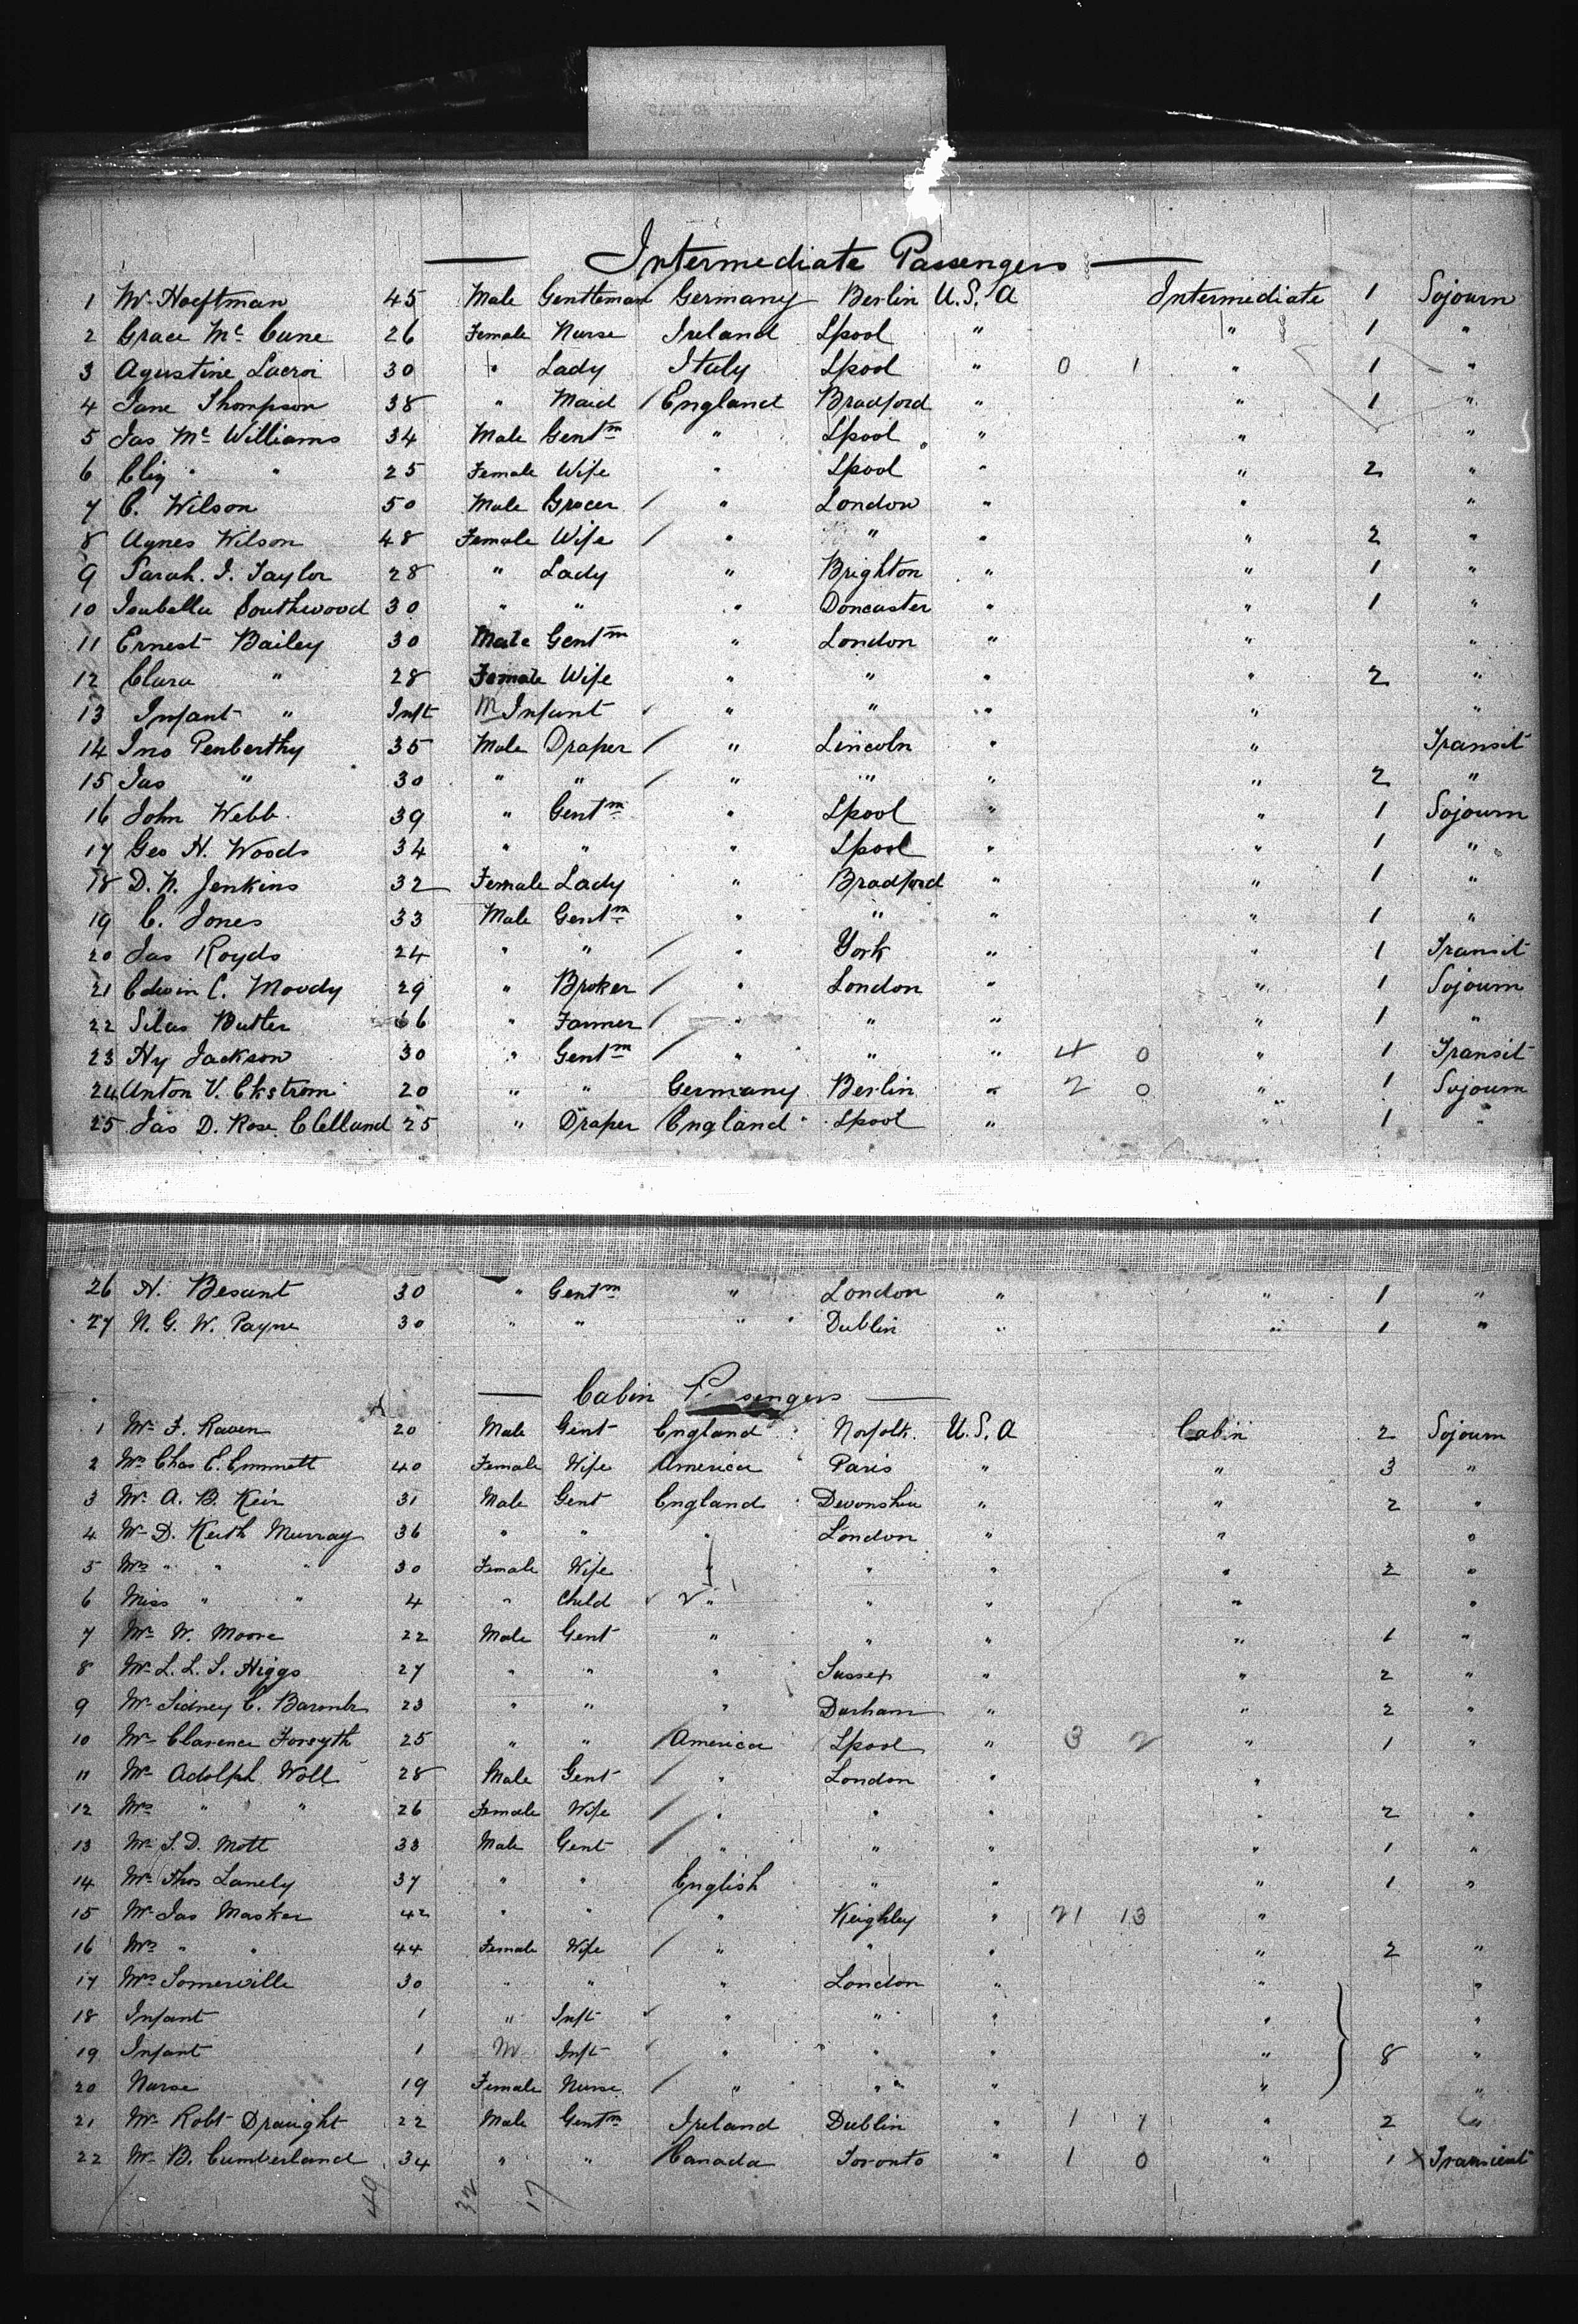 Intermediate Passengers
1 Mr Hoeftman 45 Male Gentleman Germany Berlin U.S.A Intermediate 1 Sojourn
2 Grace Mc Cune 26 Female Nurse Ireland Lpool " " 1 "
3 Agustine Lacroi 30 " Lady Italy Lpool " 0 1 " 1 "
4 Jane Thompson 38 " Maid England Bradford " " 1 "
5 Jas Mc Williams 34 Male Gentm " Lpool " " "
6 Eliz " " 25 Female Wife " Lpool " " 2 "
7 C. Wilson 50 Male Grocer " London " " "
8 Agnes Wilson 48 Female Wife " " " " 2 "
9 Sarah. J. Taylor 28 " Lady " Brighton " " 1 "
10 Isabella Southwood 30 " " " Doncaster " " 1 "
11 Ernest Bailey 30 Male Gentm " London " " "
12 Clara " 28 Female Wife " " " " 2 "
13 Infant " Inft M Infant " " " " "
14 Jno Penberthy 35 Male Draper " Lincoln " " Transit
15 Jas " 30 " " " " " " 2 "
16 John Webb 39 " Gentm " Lpool " " 1 Sojourn
17 Geo H. Woods 34 " " " Lpool " " 1 "
18 D. N. Jenkins 32 Female Lady " Bradford " " 1 "
19 C. Jones 33 Male Gentm " " " " 1 "
20 Jas Royds 24 " " " York " " 1 Transit
21 Edwin C. Moody 29 " Broker " London " " 1 Sojourn
22 Silas Butler 66 " Farmer " " " " 1 "
23 Hy Jackson 30 " Gentm " " " 4 0 " 1 Transit
24 Anton V. Ekstrom 20 " " Germany Berlin " 2 0 " 1 Sojourn
25 Jas D. Rose Clelland 25 " Draper England Lpool " " 1 "
26 H. Besant 30 " Gentm " London " " 1 "
27 N. G. W. Payne 30 " " " Dublin " " 1 "
Cabin P sengers
1 Mr F. Raven 20 Male Gent England Norfolk U.S.A Cabin 2 Sojourn
2 Mrs Chas E. Emmett 40 Female Wife America Paris " " 3 "
3 Mr A. B. Keir 31 Male Gent England Devonshire " " 2 "
4 Mr D. Keith Murray 36 " " " London " " "
5 Mrs " " " 30 Female Wife " " " " 2 "
6 Miss " " 4 " Child 2 " " " " "
7 Mr W. Moore 22 Male Gent " " " " 1 "
8 Mr L. L. S. Higgs 27 " " " Sussex " " 2 "
9 Mr Sidney C. 23 " " " Durham " " 2 "
10 Mr Clarence Forsyth 25 " " America Lpool " 3 2 " 1 "
11 Mr Adolph Woll 28 Male Gent " London " "
12 Mrs " " 26 Female Wife " " " " 2 "
13 Mr S. D. Mott 33 Male Gent " " " " 1 "
14 Mr Thos Lanely 37 " " English " " " 1 "
15 Mr Jas Masker 42 " " " Keighley " 21 13 "
16 Mrs " " 44 Female Wife " " " " 2 "
17 Mrs Somerville 30 " " " London " " "
18 Infant 1 " Inft " " " " "
19 Infant 1 M Inft " " " " 8 "
20 Nurse 19 Female Nurse " " " " "
21 Mr Robt Draught 22 Male Gentm Ireland Dublin " 1 1 " 2 "
22 Mr B. Cumberland 34 " " Canada Toronto " 1 0 " 1 X Transient
49 32 17